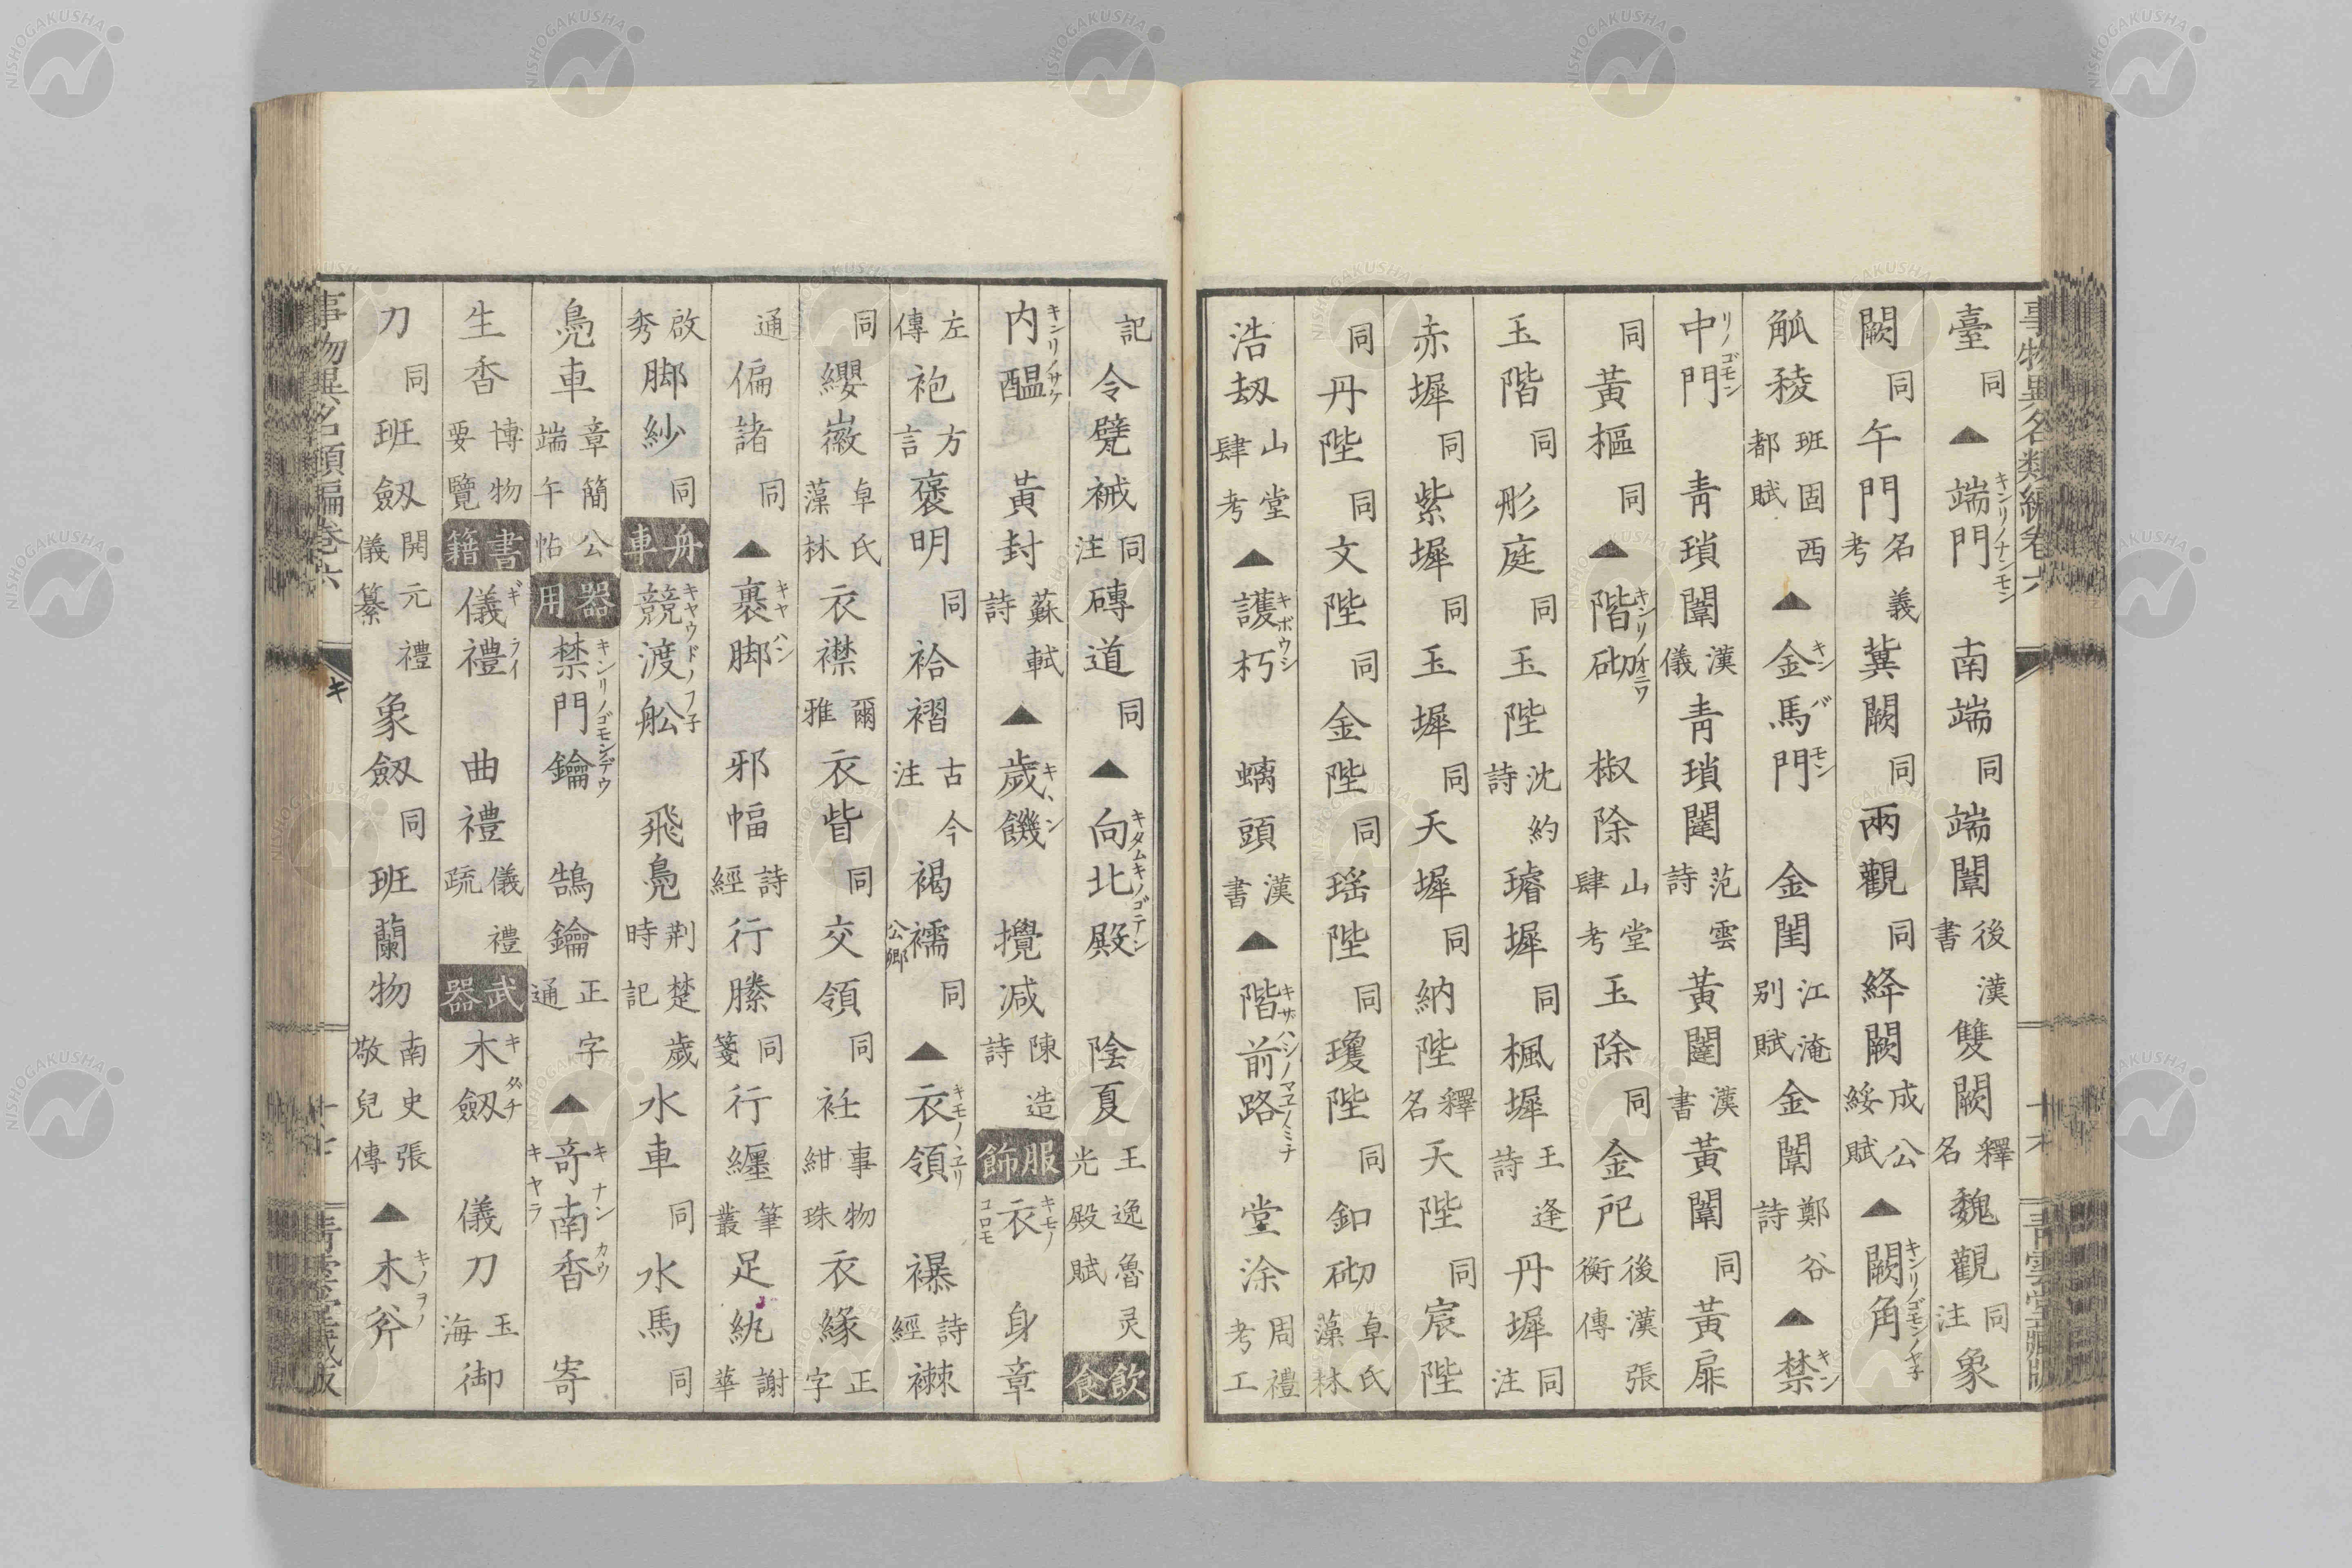 事物異名類編卷六
キ
青雲堂藏版
臺 同 ▲端門 キンリノナンモン 南端 同 端闈 後漢書 雙闕 釋名 魏觀 同注 象
闕 同 午門 名義考 冀闕 同 兩觀 同 絳闕 成公綏賦 ▲闕角 キンリノゴモンノヤ子
觚稜 班固西都賦 ▲金馬門 キンバモン 金閨 江淹別賦 金闈 鄭谷詩 ▲禁 キン
中門 リノゴモン 青瑣闈 漢儀 青瑣闥 范雲詩 黃闥 漢書 黃闈 同 黃扉
同 黃樞 同 ▲階砌 キンリノオニワ 椒除 山堂肆考 玉除 同 金戺 後漢張衡傳
玉階 同 彤庭 同 玉陛 沈約詩 璿墀 同 楓墀 王逢詩 丹墀 同注
赤墀 同 紫墀 同 玉墀 同 天墀 同 納陛 釋名 天陛 同 宸陛
同 丹陛 同 文陛 同 金陛 同 瑶陛 同 瓊陛 同 釦砌 卓氏藻林
浩刼 山堂肆考 ▲護朽 キボウシ 螭頭 漢書 ▲階前路 キザハシノマエノミチ 堂涂 周禮考工
記 令甓祴 同注 磚道 同 ▲向北殿 キタムキノゴテン 陰夏 王逸魯灵光殿賦 飲食
内醞 キンリノサケ 黃封 蘇軾詩 ▲歳饑 キヽン 攪减 陳造詩 服飾 衣 キモノ コロモ 身章
左傳 袍 方言 褒明 同 袷褶 古今注 褐襦 同 公卿 ▲衣領 キモノヽエリ 襮 詩經 襋
同 纓徽 卓氏藻林 衣襟 爾雅 衣眥 同 交領 同 衽 事物紺珠 衣緣 正字
通 偏諸 同 ▲裹脚 キヤハン 邪幅 詩經 行縢 同箋 行纏 筆叢 足紈 謝華
啟秀 脚紗 同 舟車 競渡舩 キヤウドノフ子 飛鳧 荆楚歳時記 水車 同 水馬 同
鳧車 章簡公端午帖 器用 禁門鑰 キンリノゴモンヂヤウ 鵠鑰 正字通 ▲奇南香 キナンカウ キヤラ 寄
生香 博物要覽 書籍 儀禮 ギライ 曲禮 儀禮疏 武器 木劔 キダチ 儀刀 玉海 御
刀 同 班劔 開元禮儀纂 象劔 同 班蘭物 南史張敬兒傳 ▲木斧 キノヲノ
事物異名類編卷六
キ
NISHOGAKUSHA